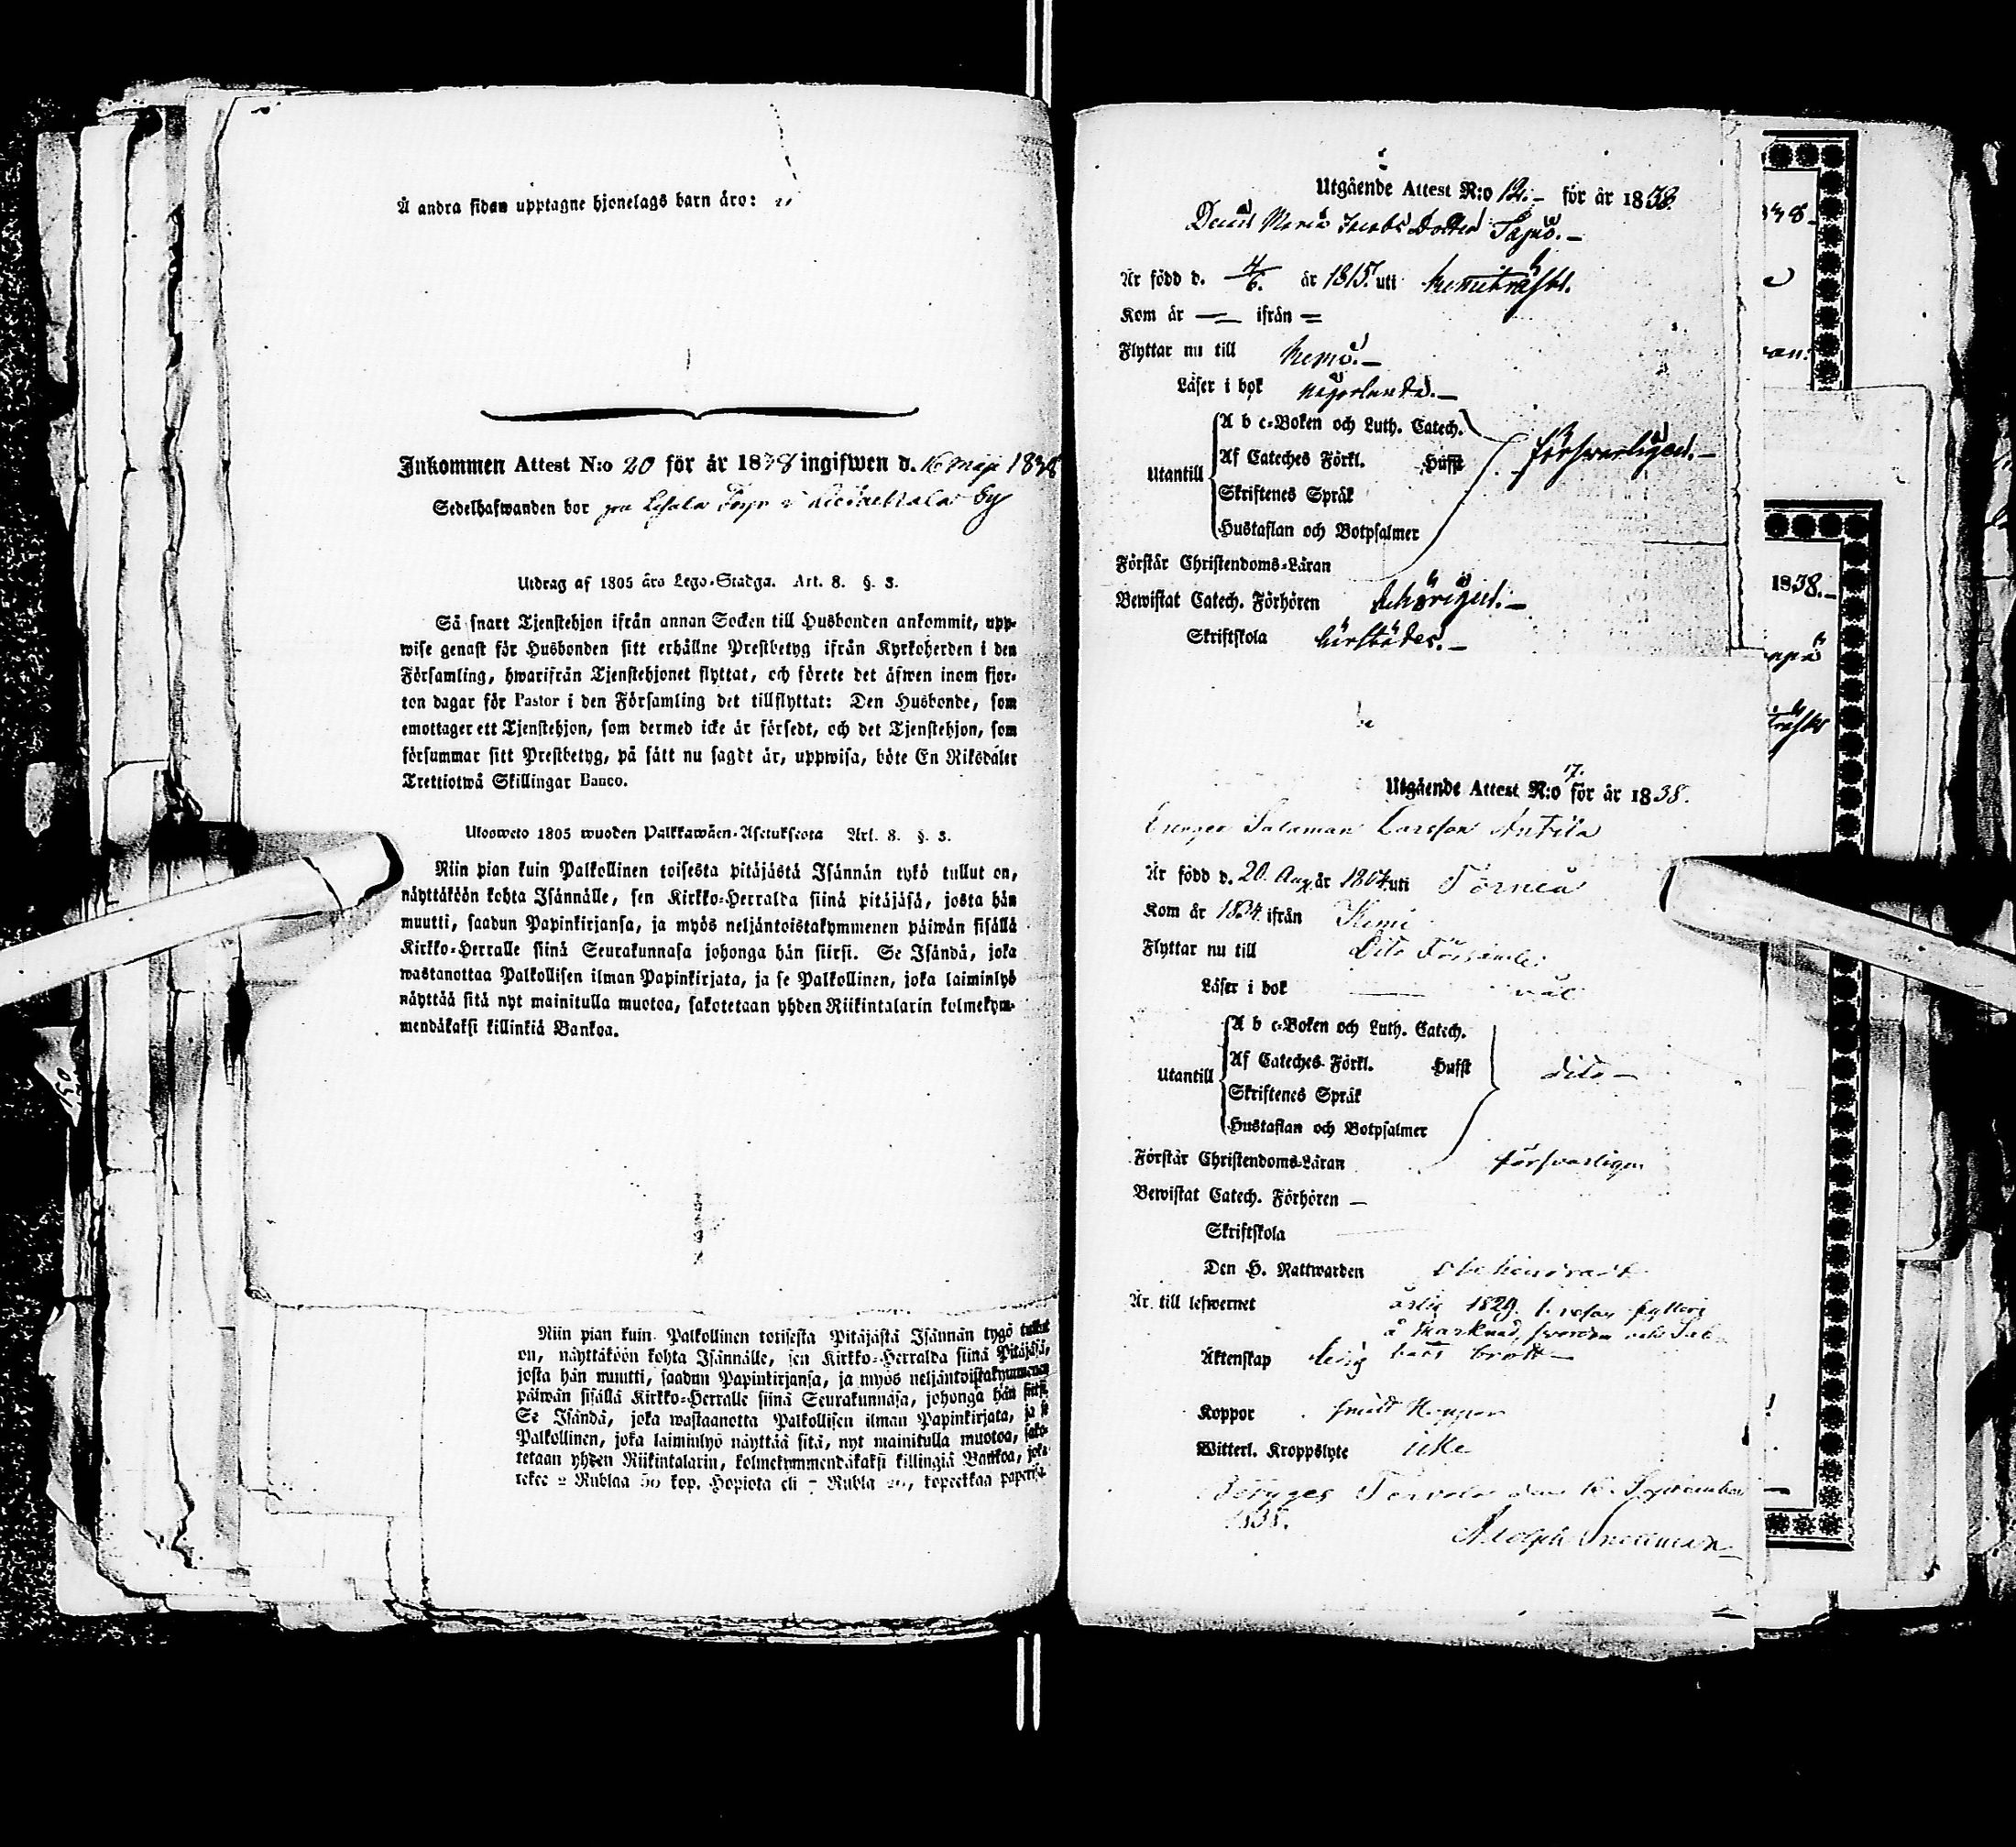 Å andra sidan upptagne hjonelags barn äro:
Inkommen Attest N:o 20 för år 1838 ingifwen d. 16 Maji 1838
Sedelhafwanden bor by
Utdrag af 1805 års Lego-Stadga. Art. 8. §. 3.
Så snart Tjenstehjon ifrån annan Socken till Husbonden ankommit, upp-
wise genast för Husbonden sitt erhållne Prestbetyg ifrån Kyrkoherden i den
Församling, hwarifrån Tjenstehjonet flyttat, och förete det äfwen inom fjor-
ton dagar för Pastor i den Församling det tillflyttat: Den Husbonde, som
emottager ett Tjenstehjon, som dermed icke är försedt, och det Tjenstehjon, som
försummar sitt Prestbetyg, på sätt nu sagdt är, uppwisa, böte En Riksdaler
Trettiotwå Skillingar Banco.
Ulosweto 1805 wuoden Palkkawäen-Asetuksesta Art. 8. §. 3.
Niin pian kuin Palkollinen toisesta pitäjästä Isännän tykö tullut on,
näyttäköön kohta Isännälle, sen Kirkko-Herralda siinä pitäjäsä, josta hän
muutti, saadun Papinkirjansa, ja myös neljäntoistakymmenen päiwän sisällä
Kirkko-Herralle siinä Seurakunnasa johonga hän siirsi. Se Isändä, joka
wastanottaa Palkollisen ilman Papinkirjata, ja se Palkollinen, joka laiminlyö
näyttää sitä nyt mainitulla muotoa, sakotetaan yhden Riikintalarin kolmekym-
mendäkaksi killinkiä Bankoa.
Niin pian kuin Palkollinen toisesta Pitäjästä Isännän tygö tullut
on, näyttäköön kohta Isännälle, sen Kirkko-Herralda siinä Pitäjäsä,
josta hän muutti, saadun Papinkirjansa, ja myös neljäntoistakymmenen
päiwän sisällä Kirkko-Herralle siinä Seurakunnasa, johonga hän siirsi.
Se Isändä, joka wastaanotta Palkollisen ilman Papinkirjata, ja se
Palkollinen, joka laiminlyö näyttää sitä, nyt mainitulla muotoa, sako-
tetaan yhden Riikintalarin, kolmekymmendäkaksi killingiä Bankoa, joka
tekee 2 Rublaa 50 kop. Hopiota eli 7 Rubla kopeekkaa paperisa
Utgående Attest N:o 12. för år 1838.
Maria Jacobs Dotter
Är född d. 4/6. år 1815. uti Kemiträsk
Kom år — ifrån =
Flyttar nu till Kemi.
Läser i bok någorlunda.
A b c-Boken och Luth. Catech.
Af Cateches Förkl. Hufst försvarligen.
Utantill
Skriftenes Språk
Hustaflan och Botpsalmer
Förstår Christendoms-Läran
Bewistat Catech. Förhören behörigen.
Skriftskola härstädes.
Utgående Attest N:o 17. för år 1838.
Salaman Larsson Antila
Är född d. 20. Aug år 1804 uti Torneå
Kom år 1834 ifrån Kemi
Flyttar nu till Dito Församl:
Läser i bok — väl
A b c-Boken och Luth. Catech.
Af Cateches Förkl. Hufst dito
Utantill
Skriftenes Språk
Hustaflan och Botpsalmer
Förstår Christendoms-Läran försvarligen
Bewistat Catech. Förhören —
Skriftskola
Den H. Nattwarden obehindrad
Är till lefwernet 1829. fylleri
å Marknad, svordom och Sab
bats brott
Äktenskap ledig
Koppor haft Koppor
Witterl. Kroppslyte icke
Betygas Tervola den 16 September
1838.
Adolph Snellman
1838.
150